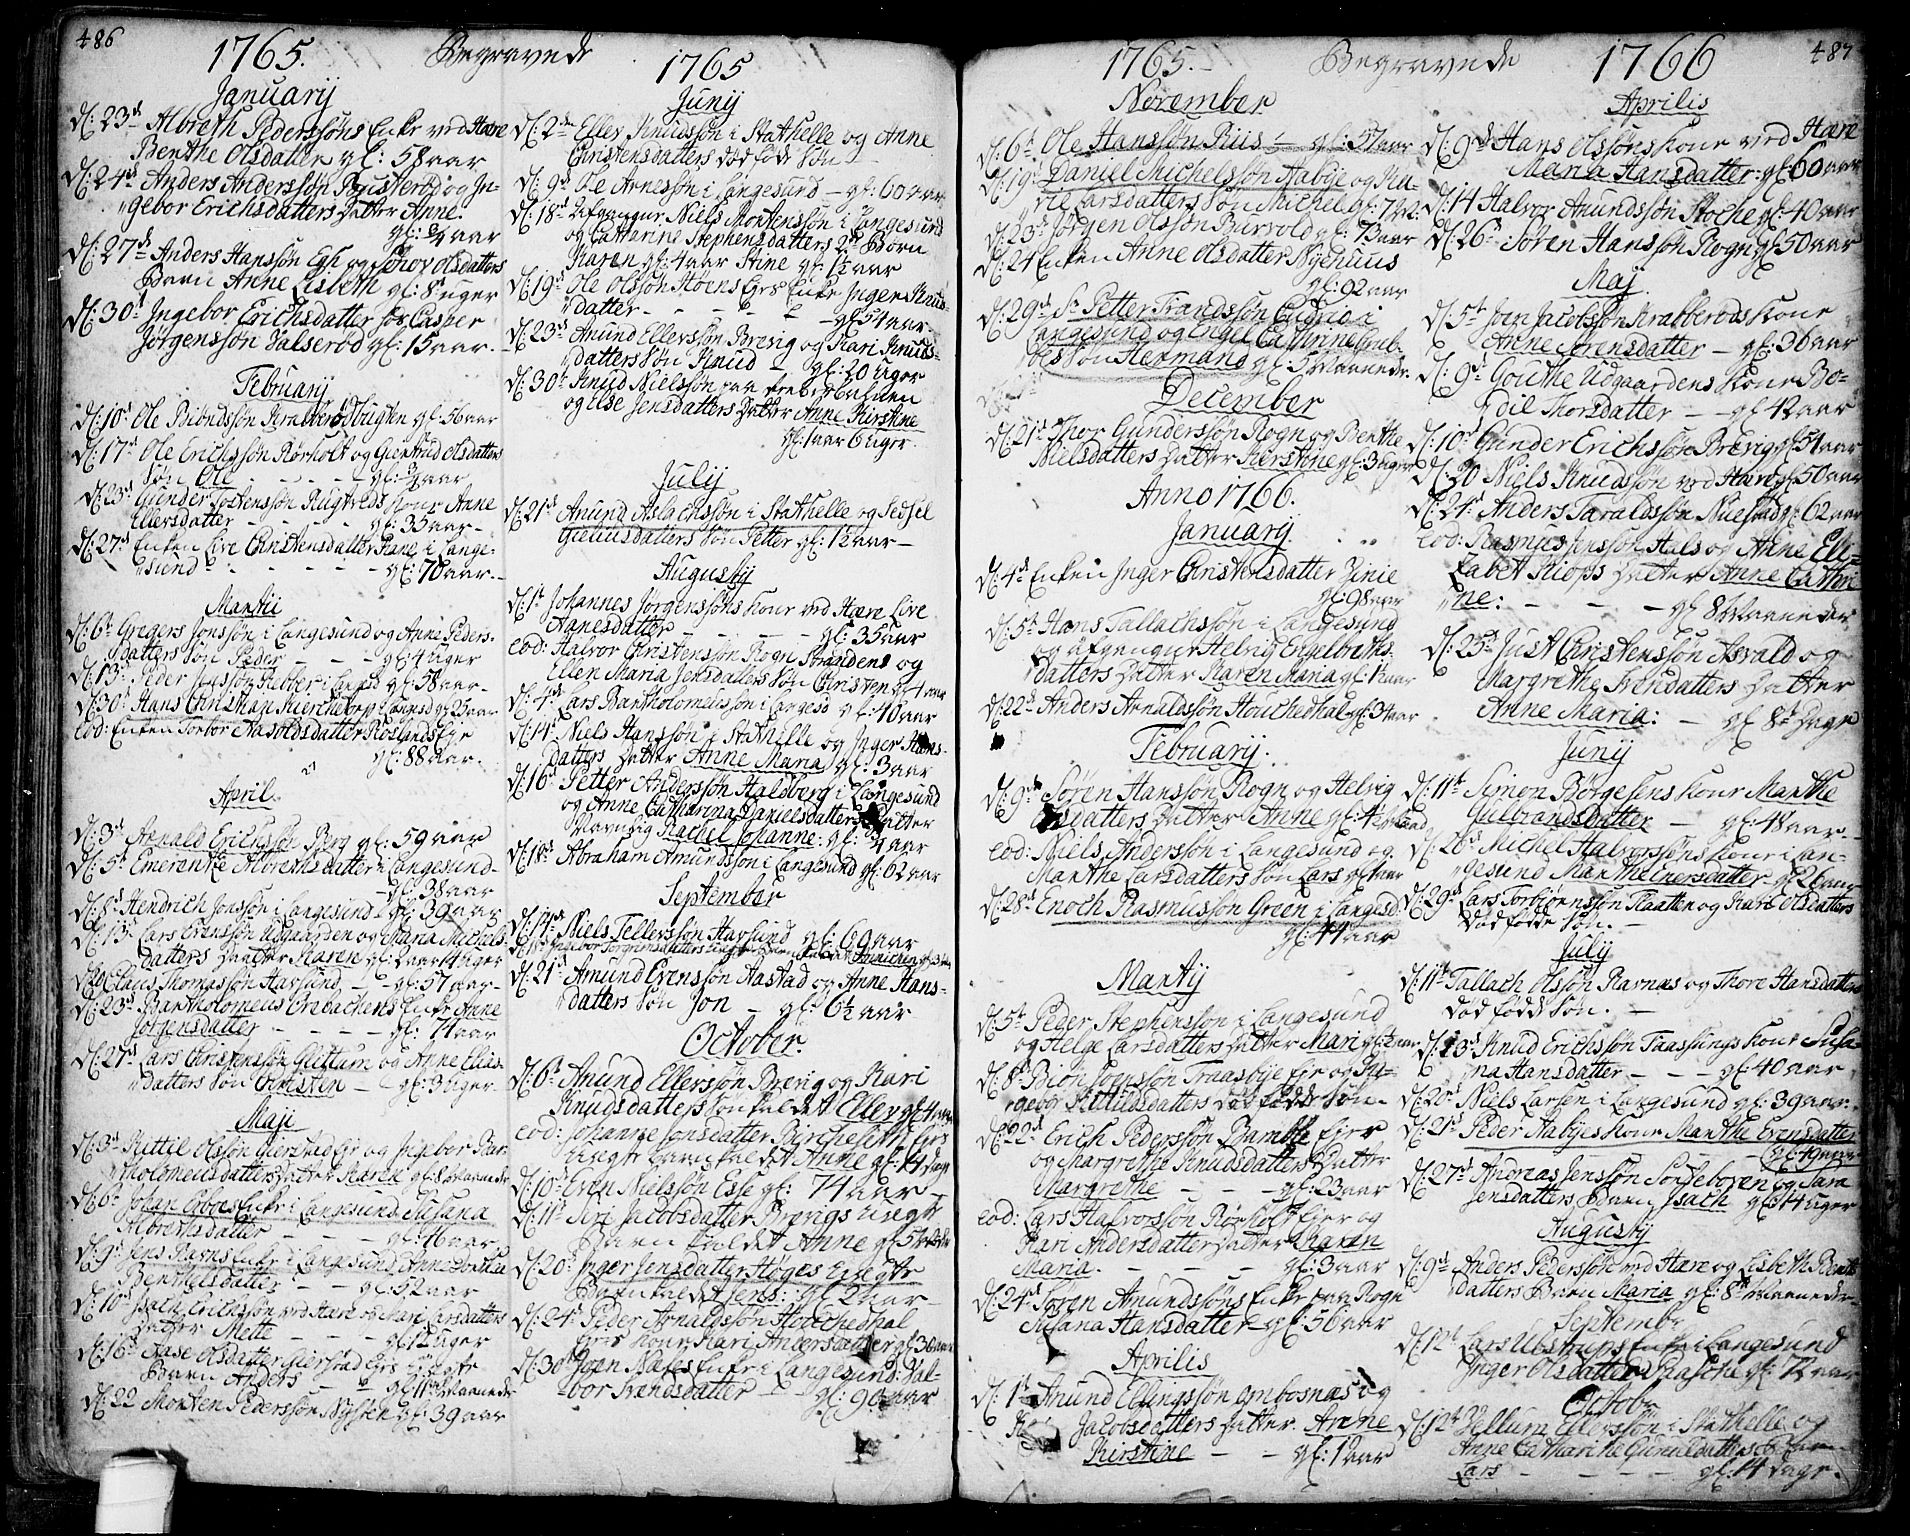 486
1765.
Begravede
Januarij
d: 23de Albreth Pederssøns Enke ved Hære
Benthe Olsdatter gl: 58 aar
d: 24de Anders Anderssøn og In-
gebor Erichsdatters datter Anne
gl: 3/4 aar
d: 27de Anders Hanssøn Esh og Olsdatters
Barn Anne Lisbeth gl: 8t uger
d: 30te Ingebor Erichsdatter hos Casper
Jørgenssøn Valserød gl: 15 aar.
Februarij
d: 10de Ole gl: 56 aar
d: 17de Ole Erichssøn Rørholt og Giertrud Olsdatters
Søn Ole - - - - gl: 3/4 aar
d: 23de Gunder Rugtveds Kone Anne
Ellersdatter - - - - gl: 35 aar -
d: 27de Enken Live Christensdatter i Lange-
sund - - - - - gl: 70 aar. -
Martij
d: 6te Gregers Jonssøn i Langesund og Anne Peders-
datters Søn Peder - - - gl: 4 uger
d: 13de Peder i Langesd gl: 58 aar -
d: 30te Hans Christian Langesd gl 25 aar
eod: Enken Torbor Aasoldsdatter
gl: 88 aar.
April.
d: 3de Arnald Erichssøn Berg gl: 59 aar
d: 5te Emerentze Albrethsdatter i Langesund -
gl: 38 aar
d: 8de Hendrich Jonssøn i Langesund - gl: 39 aar
d: 13de Lars Evenssøn Udgaarden og Maria Michels-
datters datter Karen gl: 2 aar 4 uger
d: 20 Claus Thomassøn Havsund - - gl: 57 aar -
d: 23de Bartholomeus Enke Anne
Jørgensdatter - - - - gl: 74 aar
d: 27de Lars Christenssøn Glittum og Anne Elias-
datters Søn Christen - gl: 3 uger -
Maji
d: 3de Kittil Olssøn og Ingebor Bar-
tholomeusdatters datter Karen gl: 8 Maaneder
d: 6te Johan Enke i Langesund Susana
Albrethsdatter - - - - gl: 46 aar
d: 9de Jens Ravns Enke i Langesund Anne
Bentheisdatter - - - gl: 52 aar
d: 10de Isach Erichssøn ved Hære og Mari Larsdatters
datter Mette - - - gl: 12 uger
d: 16de Aase Olsdatter
Barn Anders - - gl: 11 Maaneder
d: 22 Morten Pederssøn Nysten gl: 39 aar

1765
Junij
d: 2den Eller Knudssøn i Stathelle og Anne
Christensdatters død fødde Søn -
d: 9de Ole Arnessøn i Langesund - gl: 60 aar
d: 18de Afgangne Niels Mortenssøn i Langesund
og Cattarine Stephensdatters 2de Børn
Karen gl: 4 aar Stine gl: 1½ aar
d: 19de Ole Olssøn Enke Inger Knuds-
datter - - - - - gl: 54 aar -
d: 23de Amund Ellerssøn Brevig og Kari Knuds-
datters Søn Knud - gl: 20 uger
d: 30te Knud Nielssøn paa
og Else Jensdatters datter Anne Kirstine
gl: 1 aar 6 uger.
Julij
d: 21de Amund Aslachssøn i Stathelle og Sidsel
datters Søn Petter gl: 1½ aar -
Augustj
d: 1te Johannes Jørgenssøns Kone ved Hære Live
Hansdatter - - - - - gl: 35 aar
eod: Halvor Christenssøn Rogn og
Ellen Maria Jensdatters Søn Christen gl 4 aar
d: 4de Lars Bartholomeussøn i Langesd gl: 40 aar
d: 14de Niels Hanssøn i Stathelle og Inger Hans-
datters datter Anne Maria gl: 3 aar
d: 16de Petter Anderssøn Haldberg i Langesund
og Anne Catharina Danielsdatters datter
Navnlig Rachel Johanne: gl: 3/4 aar
d: 18de Abraham Amundssøn i Langesund gl: 62 aar
September
d: 14de Niels Tellerssøn Havsund gl: 69 aar
d: 21de Amund Evenssøn Aastad og Anne Hans-
datters Søn Jon - gl: 6½ aar
October.
d: 6te Amund Ellerssøn Brevig og Kari
Knudsdatters Søn kaldet Eller gl: 4 aar
eod: Johanne Jonsdatter
uægte barn kaldet Anne gl: 14 dage
d: 10de Even Nielssøn Esse gl: 74 aar -
d: 11te Siri Jacobsdatter Brevigs uægte
Barn kaldet Anne gl 5
d: 20de Inger Jensdatter Høges uægte
Barn kaldet Jens: gl 2 aar -
d: 24de Peder Arnaldssøn Stochedhal
Kone Kari Andersdatter gl 30 aar
d: 30te Joen Næses Enke i Langesund Val-
bor Svendsdatter - gl: 90 aar

1765. -
Begravede
November
d: 6te Ole Hanssøn Riis - gl: 57 aar
d: 19de Daniel Michelssøn Aabye og Ka-
rie Larsdatters Søn Michel gl: 7 aar:
d: 23de Jørgen Olssøn Burvold gl: 73 aar
d: 24 Enken Anne Olsdatter Nyehuus
gl: 92 aar
d: 29de Sr Petter Frandssøn i
Langesund og Engel Cathrine
Søn Hermand gl 5 Maaneder.
December
d: 21de Thor Gunderssøn Rogn og Benthe
Nielsdatters datter Kirstine gl: 3 uger
Anno 1766.
Januarij.
d: 4de Enken Inger Christensdatter Zinie
gl: 98 aar
d: 5te Hans Tallachssøn i Langesund
og afgangne Helvig Engelbreths-
datters datter Karen Maria gl: 1½ aar
d: 22de Anders Arnaldssøn Stouchedhal gl: 34 aar
Februarij.
d: 9de Søren Hanssøn Rogn og Helvig
datters datter Anne gl: 4
eod: Niels Anderssøn i Langesund og
Marthe Larsdatters Søn Lars gl 1 aar
d: 28de Enoch Rasmussøn Green i Langesd:
gl: 44 aar
Martij
d: 5te Peder Stephenssøn i Langesund
og Helge Larsdatters datter Mari gl: 2 aar
d: 8de Biøn Jonssøn Traasbye Ejer og In-
gebor Kittilsdatters død fødde Søn -
d: 22de Erich Pederssøn Bamble Ejer
og Margrethe Knudsdatters datter
Margrethe - - - gl: 23 aar
eod: Lars Halvorssøn Rørholt Ejer og
Kari Andersdatters datter Karen
Maria. - - - - gl: 3 aar
d: 24de Søren Amundssøns Enke paa Rogn
Susana Hansdatter - gl: 56 aar
Aprilis
d: 1te Amund Ellingssøn Ombosnæs og
Jacobsdatters datter. Anne
Kirstine - - gl: 1 aar

1766
487
Aprilis
d: 9de Hans Olssøns Kone ved Hære
Maria Hansdatter: gl: 60 aar
d: 14 Halvor Amundssøn Stoche gl: 40 aar
d: 26de Søren Hanssøn Rogn gl 50 aar
Maj.
d: 5te Joen Jacobssøn Krabberøds Kone
Anne Sørensdatter - gl: 36 aar
d: 9de Gouthe Udgaardens Kone Bo-
dil Thorsdatter - - gl 42 aar
d: 10de Gunder Erichssøn Brevig gl 54 aar
d: 20 Niels Knudssøn ved Hære gl 50 aar
d: 24de Anders Taraldssøn gl: 62 aar
eod: Rasmus Jenssøn Hals og Anne Eli-
sabet Kiøps datter Anne Cathri-
ne: - - - gl 8 Maaneder
d: 25de Just Christenssøn Asvald og
Margrethe Svendatters datter
Anne Maria: - gl 8te Dage
Junij
d: 11te Simon Børgesens Kone Marthe
Gulbrandsdatter - gl: 48 aar. -
d: 26de Michel Halvorssøns Kone i Lan-
gesund Marthe Enersdatter gl 26 aar
d: 29de Lars Torbiørnssøn Flaatten og Kari Olsdatters
død fødde Søn. -
Julij
d: 11te Tallach Olssøn Ravnæs og Thore Hansdatters
død fødde Søn. -
d: 13de Knud Erichssøn Taassungs Kone Susa-
na Hansdatter - - - gl: 40 aar
d: 20de Niels Larsen i Langesund gl: 39 aar.
d: 21de Peder Aabyes Kone Marthe Evensdatter
gl: 49 aar
d: 27de Andreas Jenssøn Sondeboren og Sara
Jensdatters Barn Isach gl: 14 uger
Augustij
d: 9de Anders Pederssøn ved Hære og Lisbeth Bent-
datters Barn Maria gl: 8te Maaneder -
Septembr
d: 12te Lars Ubstrups Enke i Langesund
Inger Olsdatter Paasche gl: 72 aar
Octobr
d: 12te Vellum Ellerssøn i Stathelle og
Anne Catharine Gunnildsdatters
Lars - - - - - gl: 14 dage.